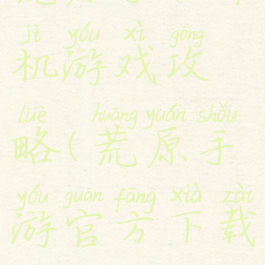 jī yóu xì gōng
机游戏攻
lüè huāng yuán shǒu
略(荒原手
yóu guān fāng xià zài
游官方下载